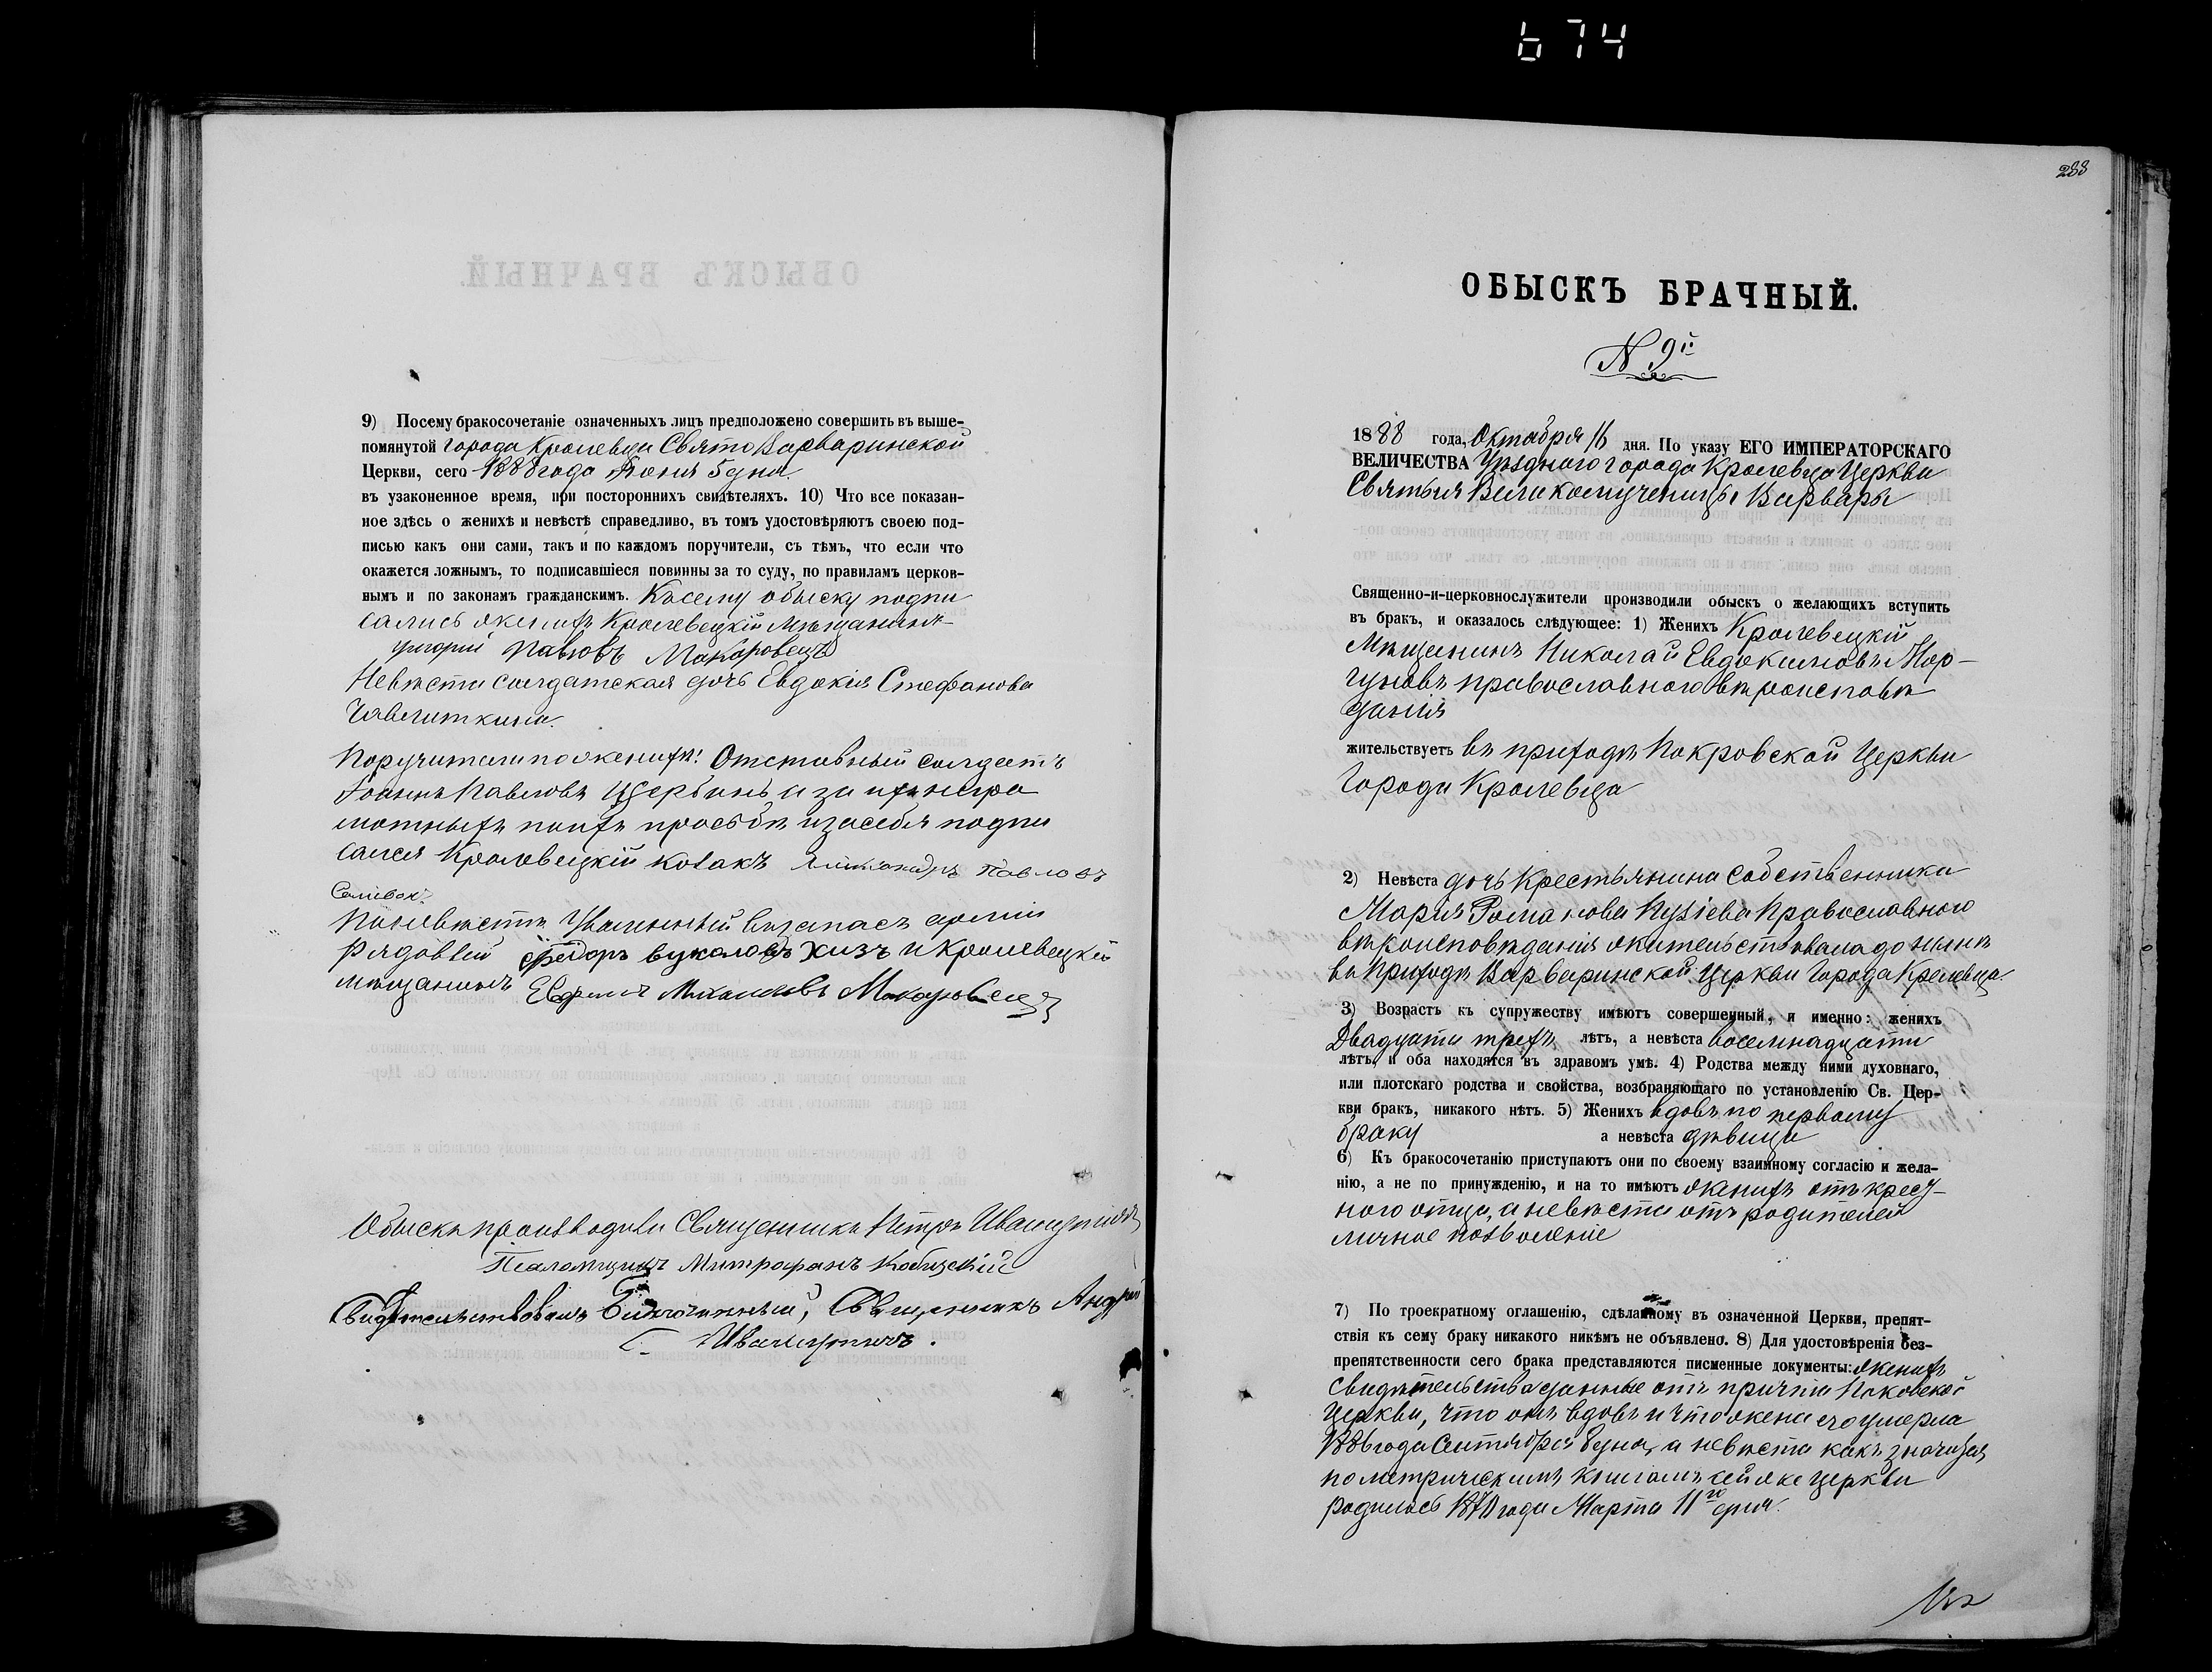 674
9) Посему бракосочетаніе означенныхъ лицъ предположено совершить въ выше-
помянутой города Кролевца Свято Варваринской
Церкви, сего 1888 года Іюня 5 дня
въ узаконенное время, при постороннихъ свидѣтеляхъ. 10) Что все показан-
ное здѣсь о женихѣ и невѣстѣ справедливо, въ томъ удостовѣряютъ своею под-
писью какъ они сами, такъ и по каждомъ поручители, съ тѣмъ, что если что
окажется ложнымъ, то подписавшіеся повинны за то суду, по правиламъ церков-
нымъ и по законамъ гражданскимъ. Къ сему обыску подпи
сались женихъ Кролевецкій мѣщанинъ
Григорій Павловъ Макаровецъ
Невѣста солдатская дочь Евдокія Стефанова

Поручители по женихѣ: Отставный солдатъ
Іоаннъ Павловъ Щербань а за ихъ негра
мотныхъ поихъ просьбѣ и за себя подпи
сался Кролевецкій козакъ Александръ Павловъ

По невѣстѣ Уволенный въ запасъ арміи
рядовый Фѣдоръ Вуколовъ Хизъ и Кролевецкій
мѣщанинъ Михаиловъ Макаровецъ
Обыскъ производили Священникъ Петръ
Псаломщикъ Митрофанъ
Свидѣтельствовалъ Благочинный, Священникъ Андрей

288
ОБЫСКЪ БРАЧНЫЙ.
N 9й
1888 года, Октября 16 дня. По указу ЕГО ИМПЕРАТОРСКАГО
ВЕЛИЧЕСТВА Уѣзднаго города Кролевца Церкви
Святыя Великомученицы Варвары
Священно-и-церковнослужители производили обыскъ о желающихъ вступить
въ бракъ, и оказалось слѣдующее: 1) Женихъ Кролевецкій
Мѣщанинъ Николай Евдокимовъ Мор-
гуновъ православнаго вѣроисповѣ
данія
жительствуетъ въ приходѣ Покровской Церкви
Города Кролевца
2) Невѣста дочь Крестьянина Собственника
Марія Романова Пузіева Православнаго
вѣроисповѣданія жительствовала до нынѣ
въ приходѣ Варваринской Церкви Города Кролевца.
3) Возрастъ къ супружеству имѣютъ совершенный, и именно: женихъ
Двадцати трехъ лѣтъ, а невѣста восемнадцати
лѣтъ, и оба находятся въ здравомъ умѣ. 4) Родства между ними духовнаго,
или плотскаго родства и свойства, возбраняющаго по установленію Св. Цер-
кви бракъ, никакого нѣтъ. 5) Женихъ вдовъ по первому
браку а невѣста дѣвица
6) Къ бракосочетанію приступаютъ они по своему взаимному согласію и жела-
нію, а не по принужденію, и на то имѣютъ женихъ отъ крес-
ного отца, а невѣста отъ родителей
личное позволеніе
7) По троекратному оглашенію, сдѣланному въ означенной Церкви, препят-
ствія къ сему браку никакого никѣмъ не объявлено. 8) Для удостовѣренія без-
препятственности сего брака представляются писменные документы: женихъ
свидѣтельства данные отъ причта Поковской
Церкви, что онъ вдовъ и что жена его умерла
1886 года Сентября 8 дня, а невѣста какъ значится
по метрическимъ книгамъ сей же церкви
родилась 1870 года Марта 11го дня.